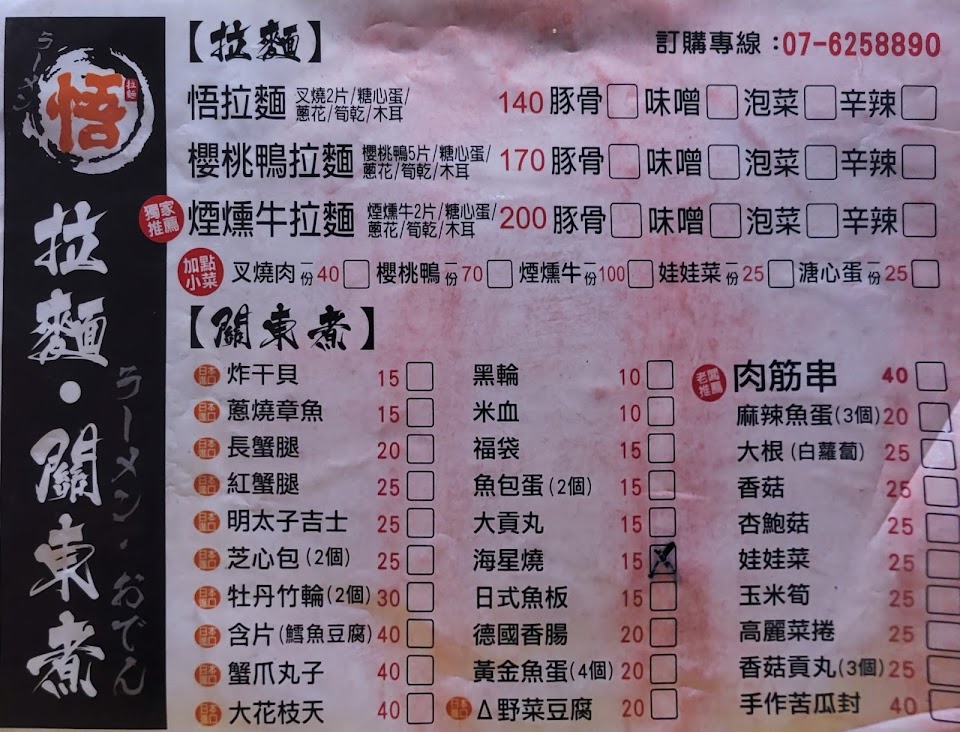 ラーメン
悟
拉麵
拉麵・關東煮
ラーメン・おでん
【拉麵】
訂購專線：07-6258890
悟拉麵 叉燒2片/糖心蛋/蔥花/筍乾/木耳 140 豚骨 味噌 泡菜 辛辣
櫻桃鴨拉麵 櫻桃鴨5片/糖心蛋/蔥花/筍乾/木耳 170 豚骨 味噌 泡菜 辛辣
獨家推薦 煙燻牛拉麵 煙燻牛2片/糖心蛋/蔥花/筍乾/木耳 200 豚骨 味噌 泡菜 辛辣
加點小菜 叉燒肉一份40 櫻桃鴨一份70 煙燻牛一份100 娃娃菜一份25 溏心蛋一份25
【關東煮】
日本進口 炸干貝 15
日本進口 蔥燒章魚 15
日本進口 長蟹腿 20
日本進口 紅蟹腿 25
日本進口 明太子吉士 25
日本進口 芝心包(2個) 25
日本進口 牡丹竹輪(2個) 30
日本進口 含片(鱈魚豆腐) 40
日本進口 蟹爪丸子 40
日本進口 大花枝天 40
黑輪 10
米血 10
福袋 15
魚包蛋(2個) 15
大貢丸 15
海星燒 15
日式魚板 15
德國香腸 20
黃金魚蛋(4個) 20
日本進口 Δ野菜豆腐 20
老闆推薦 肉筋串 40
麻辣魚蛋(3個) 20
大根(白蘿蔔) 25
香菇 25
杏鮑菇 25
娃娃菜 25
玉米筍 25
高麗菜捲 25
香菇貢丸(3個) 25
手作苦瓜封 40